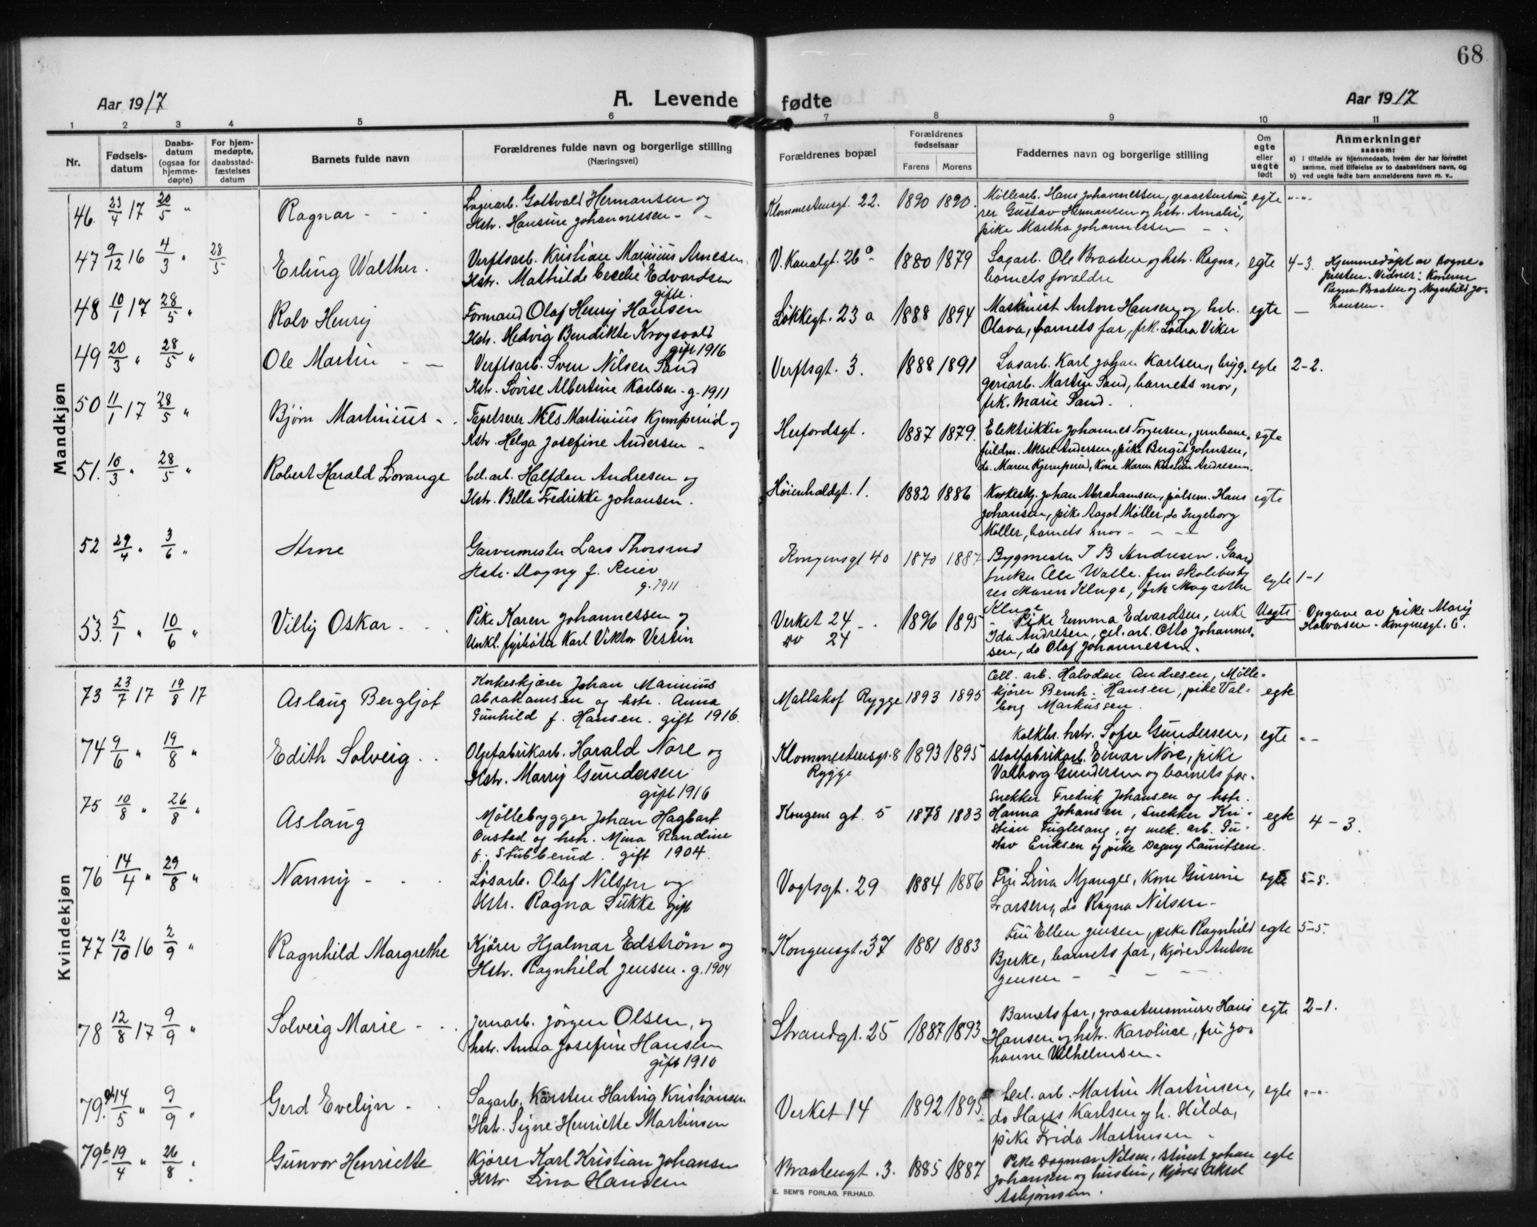 68
Aar 1917
A. Levende fødte
Aar 1917
1 2 3 4 5 6 7 8 9 10 11
Nr.
Fødsels-
datum
Daabs-
datum
(ogsaa for
hjemme-
døpte)
For hjem-
medøpte,
daabsstad-
fæstelses
datum
Barnets fulde navn
Forældrenes fulde navn og borgerlige stilling
(Næringsvei)
Forældrenes bopæl
Forældrenes
fødselsaar
Farens Morens
Faddernes navn og borgerlig stilling
Om
egte
eller
uegte
født
Anmerkninger
saasom:
a) i tilfælde av hjemmedaab, hvem der har forrettet
samme, med tilføielse av to daabsvidners navn, og
b) ved uegte fødte barn anmelderens navn m. v..
Mandkjøn
46. 23/4 17 20/5 "
Ragnar
Lagerarb. Gottvald Hermansen og
Hstr. Hansine Johannessen
Klommestensgt. 22. 1890 1890.
Møllearb. Hans Johannessen, graastensmu-
rer Gustav Hermansen og hstr. Amalie,
pike Martha Johannessen
egte
47 9/12 16 4/3 " 28/5
Erling Walther.
Verftsarb. Kristian Marinius Arnesen
Hstr. Mathilde Cecelie Edvardsen
gifte.
V. Kanalgt. 26a 1880 1879
Sagarb. Ole Braaten og hstr. Ragna,
barnets forældre
egte 4-3.
Hjemmedøpt av sogne-
presten. Vidner: Konene
Ragna Braaten og Magnhild Jo-
hansen.
48 10/1 17 28/5 "
Rolv Henry
Formand Olaf Henry Hansen
Hstr. Hedvig Bendikte Krogsvold
gift 1916
Løkkegt. 23 a 1888 1894
Maskinist Anton Hansen og hst.
Olava, barnets far, frk. Lovra Viker
egte
49 20/3 " 28/5 "
Ole Martin
Verftsarb. Sven Nilsen Sand
Hstr. Lovise Albertine Karlsen g. 1911
Verftsgt. 3. 1888 1891
Løsarb. Karl Johan Karlsen, bryg-
geriarb. Martin Sand, barnets mor,
frk. Marie Sand.
egte 2-2.
50 11/1 17 28/5 "
Bjørn Martinius
Tapetserer Nils Martinius Kjemperud og
Hstr. Helga Josefine Andersen
Herfordsgt. 1887 1879.
Elektrikker Johannes Torgersen, jernbane-
fuldm. Aksel Andersen, pike Bergit Johnsen,
do. Maren Kjemperud, kone Maren Kristine Andresen.
egte
51. 16/3 " 28/5 "
Robert Harald Lovange
Cel. arb. Halfdan Andresen og
Hstr. Bella Fredrikke Johansen.
Høienhaldsgt. 1. 1882 1886
Korkeskj. Johan Abrahamsen, pølsem. Hans
Johansen, pike Aagot Møller, do Ingeborg
Møller, barnets mor
egte
52 29/4 " 3/6 "
Arne
Garvermester Lars Thorsrud
Hstr. Dagny f. Reier
g. 1911
Kongensgt 40 1870 1887
Bygmester T B Andresen. Gaard
bruker Ole Walle. fru skolebesty
rer Maren Kluge, frk Magrethe
Kluge
egte 1-1
53. 5/1 " 10/6 "
Villy Oskar
Pike Karen Johannessen og
Unkl. fyrbøter Karl Viktor Vestin
Verket 24 1896 1895
" 24
Pike Emma Edvardsen, enke
Ida Andresen, cel. arb. Otto Johannes-
sen, do Olaf Johannessen.
Uegte
Opgave av pike Mary
Halvorsen - Kongensgt. 6.
Kvindekjøn
73 23/7 17 19/8 17
Aslaug Bergljot
Korkeskjærer Johan Marinius
Abrahamsen og hstr. Anna
Gunhild f. Hansen. gift 1916.
Mallakof Rygge 1893 1895
Cell. arb. Halvdan Andresen, Mølle-
kjører Bernh. Hansen, pike Val-
borg Markussen.
egte
74 9/6 " 19/8 "
Edith Solveig
Oljefabrikarb. Harald Nore og
Hstr. Marry Gundersen
gift 1916
Klommestensgt. 8
Rygge
1893 1895
Kolkbr. hstr. Sofie Gundersen,
stolfabrikarb. Einar Nore, pike
Valborg Gundersen og barnets far.
egte
75 10/8 " 26/8 "
Aslaug
Møllebygger Johan Hagbart
Onstad og hstr. Mina Randine
f. Stubberud. gift 1904.
Kongens gt. 5 1878 1883
Snekker Fredrik Johansen og hstr.
Hanna Johansen, Snekker Kri-
stian Fuglesang, og mek. arb. Gu-
stav Eriksen og pike Dagny Lauritsen.
egte 4-3.
76 14/4 " 29/8 "
Nanny
Løsarb. Olaf Nilsen og
Hstr. Ragna Sukke gift
Vogtsgt. 29 1884 1886
Fru Lina Mjanger, Kone Gurine
Larsen, do Ragna Nilsen
egte 5-5.
77 12/10 16 2/9 "
Ragnhild Margrethe
Kjører Hjalmar Edstrøm og
Hstr. Ragnhild Jensen. g. 1904
Kongensgt. 37 1881 1883
Fru Ellen Jensen, pike Ragnhild
Bjerke, barnets far, Kjører Anton
Jensen
egte 5-5.
78 12/8 17 9/9 "
Solveig Marie
Jernarb. Jörgen Olsen, og
hstr. Anna Josefine Hansen
gift 1910
Strandgt. 25 1887 1893
Barnets far, graastensmurer Hans
Hansen og hstr. Karoline, fru Jo-
hanne Vilhelmsen.
egte 2-1.
79a 14/5 " 9/9 "
Gerd Evelyn
Sagarb. Karsten Hartvig Kristiansen
Hstr. Signe Henriette Martinsen
Verket 14 1892 1895
Cel. arb. Martin Martinsen,
do Hans Karlsen og h. Hilda,
pike Frida Martinsen
egte
79b 19/4 " 26/8 "
Gunvor Henriette
Kjører Karl Kristian Johansen
Hstr Lina Hansen
Braatengt. 3. 1885 1887
Pike Dagmar Nilsen, stuert Johan
Johansen og hustru, kjører Aksel
Asbjørnsen.
egte
E. SEM'S FORLAG, FR.HALD.